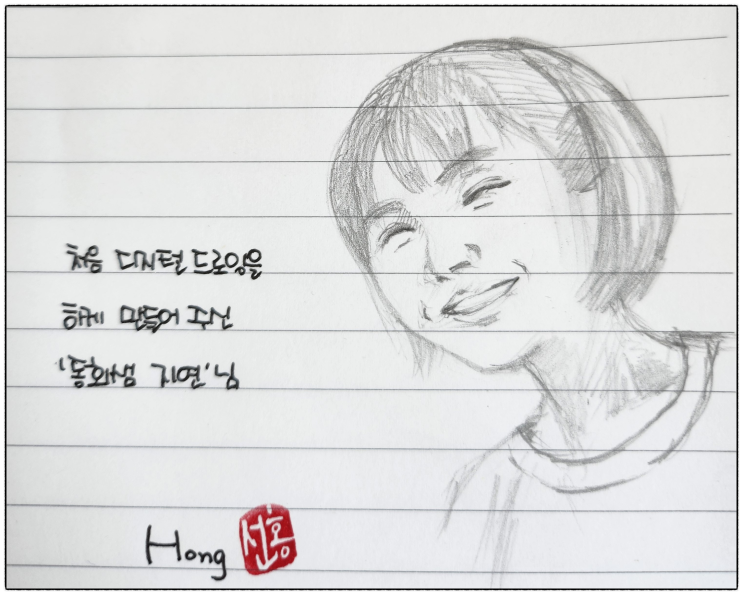 처음 디지털 드로잉을
하게 만들어 주신
'동화샘 지연'님
Hong
선홍